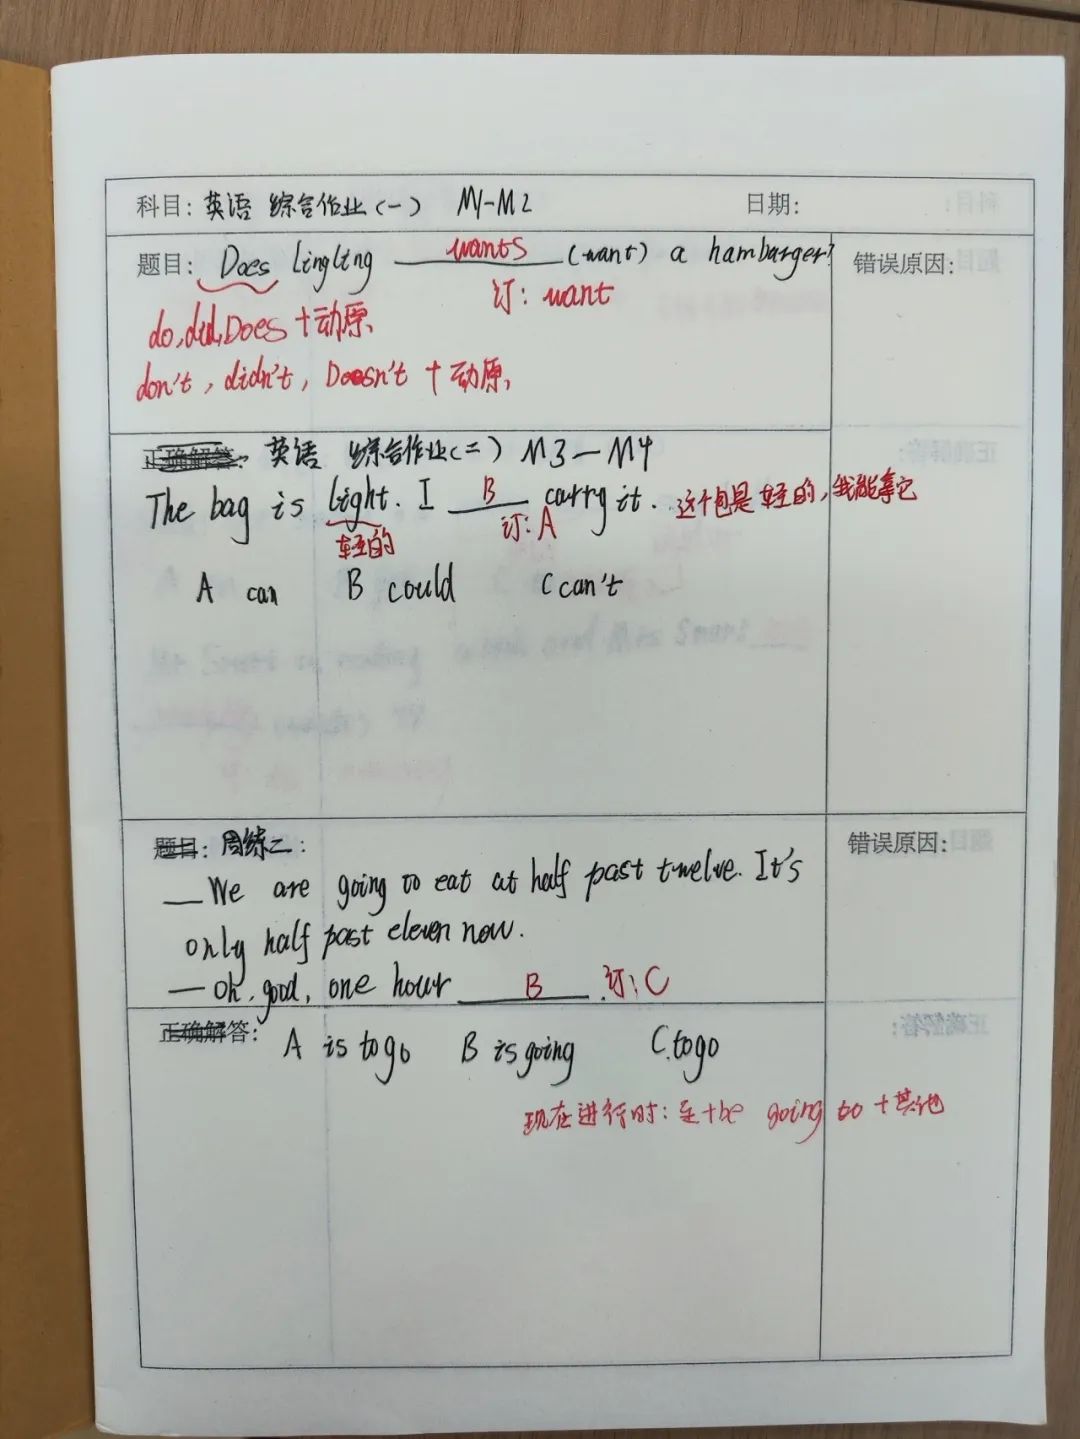 科目: 英语 综合作业(一) M1-M2 日期:
题目: Does Lingling wants (want) a hambarger? 错误原因:
订: want
do, did, Does + 动原
don't, didn't, Doesn't + 动原
正确解答: 英语 综合作业(二) M3-M4
The bag is light. I B carry it. 这个包是轻的,我能拿它
轻的 订: A
A can B could C can't
题目: 周练二:
— We are going to eat at half past twelve. It's
only half past eleven now.
— Oh, good, one hour B 订: C
正确解答: A is to go B is going C. to go
现在进行时: 主+be going to + 其他
错误原因: